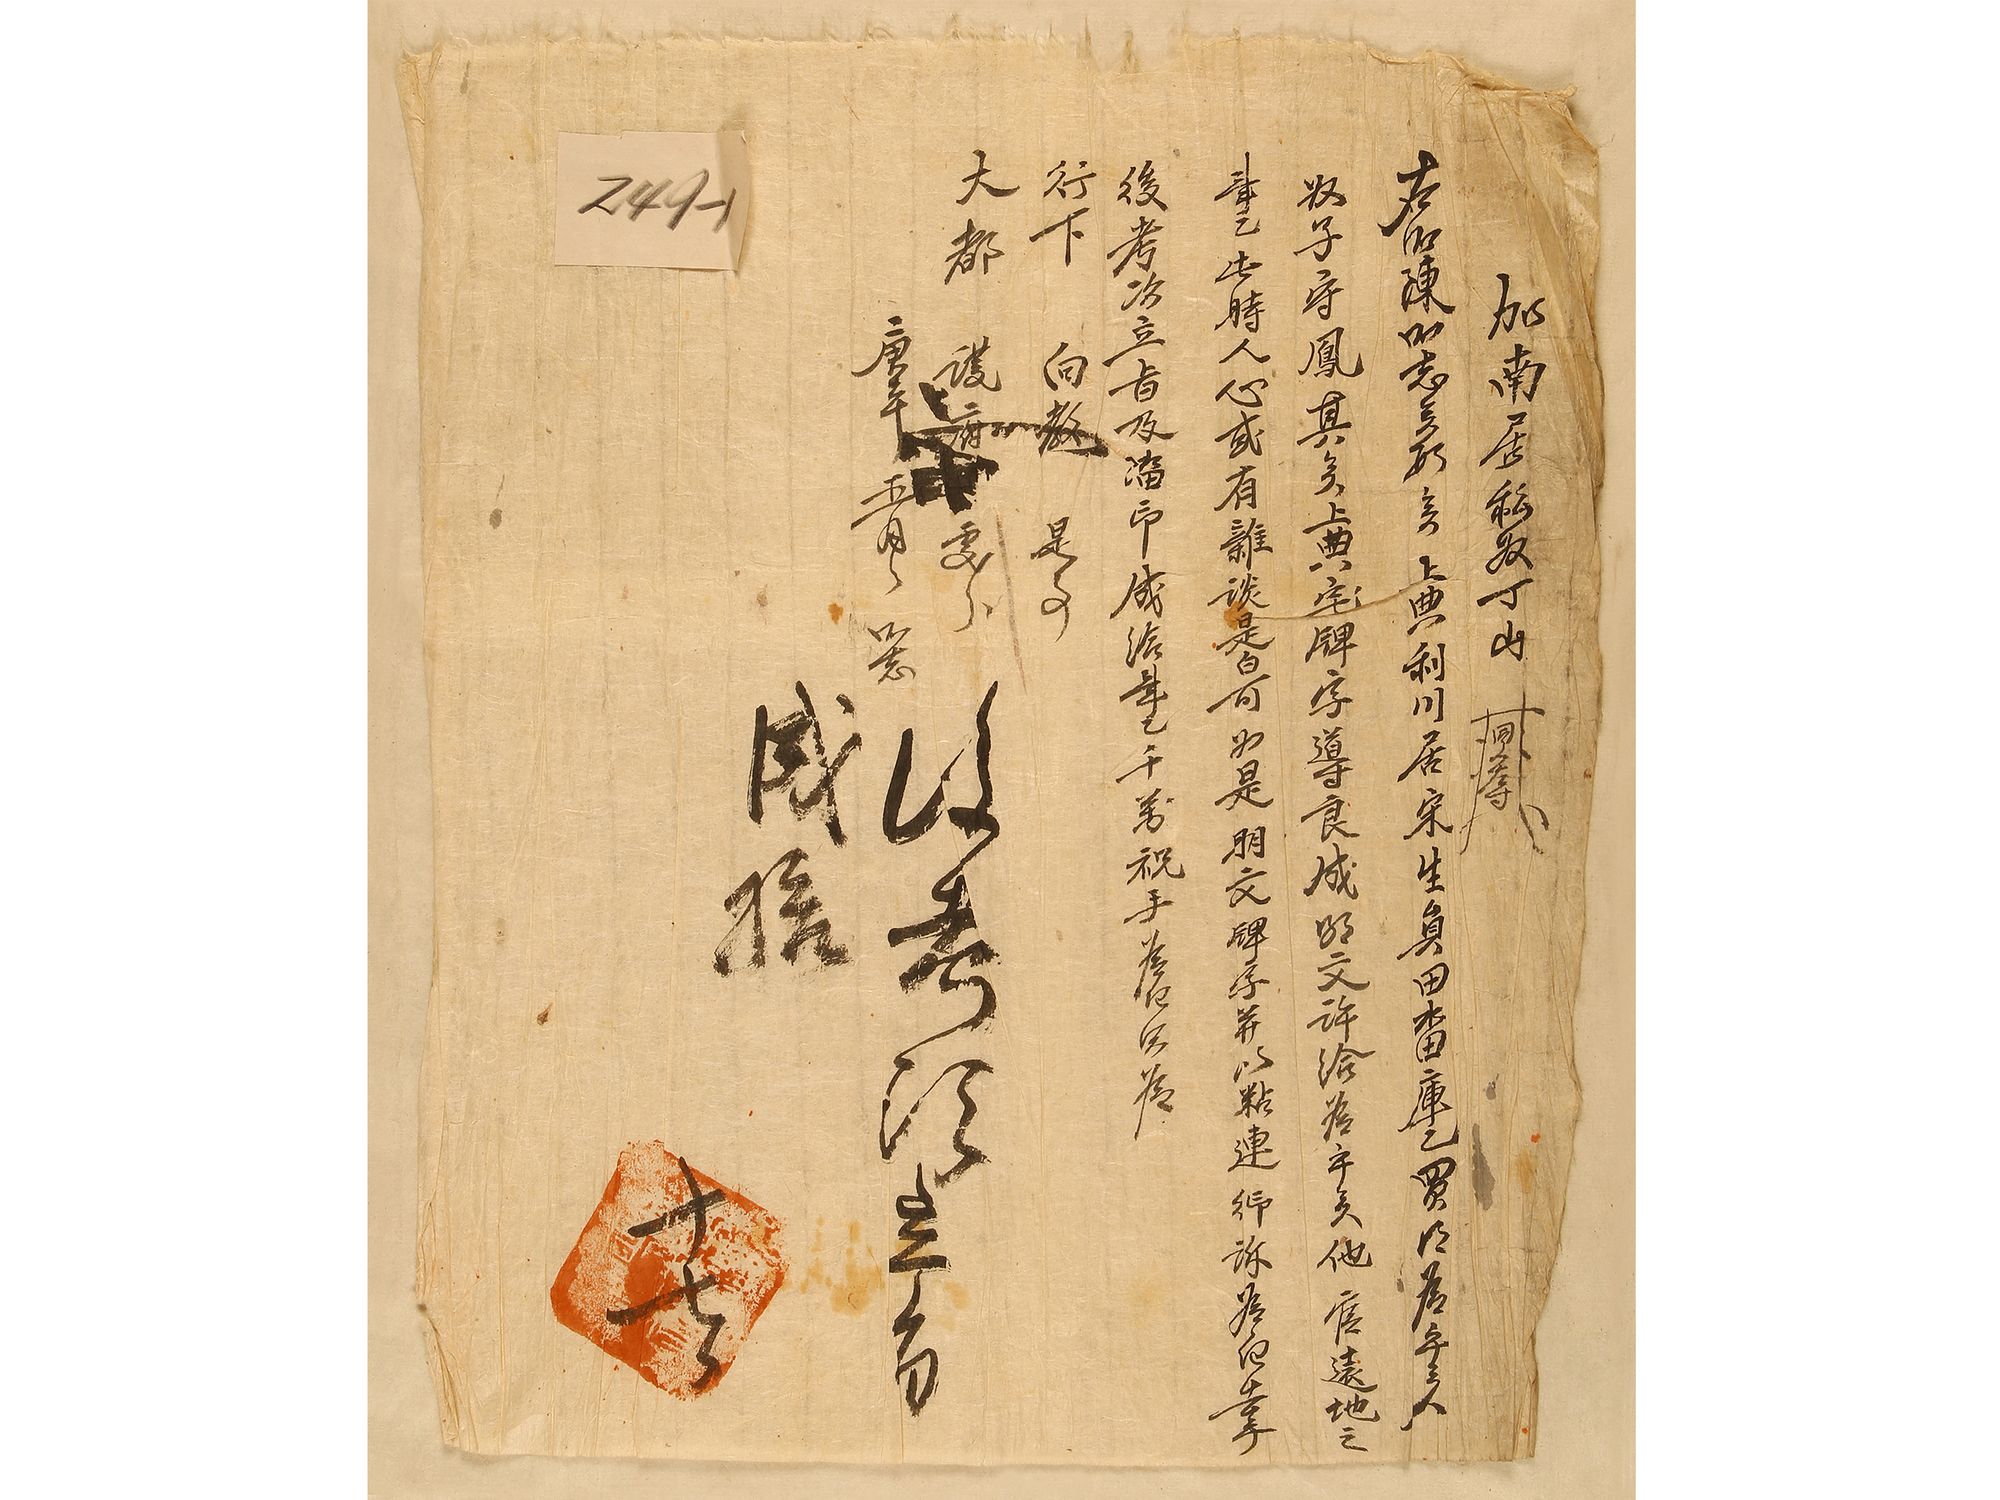 加南居私奴丁山
右所陳叱志矣段矣上典利川居宋生員田畓庫乙買得爲乎矣
奴子守鳳其矣上典宅牌字導良成明文許給爲乎矣他官遠地之
軰乙此時人心或有雜談是白可如是明文牌字并以粘連仰訴爲白去乎
後考次立旨及踏印成給軰乙千萬祝手爲白只爲
行下 向教是事
大都護府 處分
庚午 五月 日 所志
後考次立旨
成給
十七
249-1